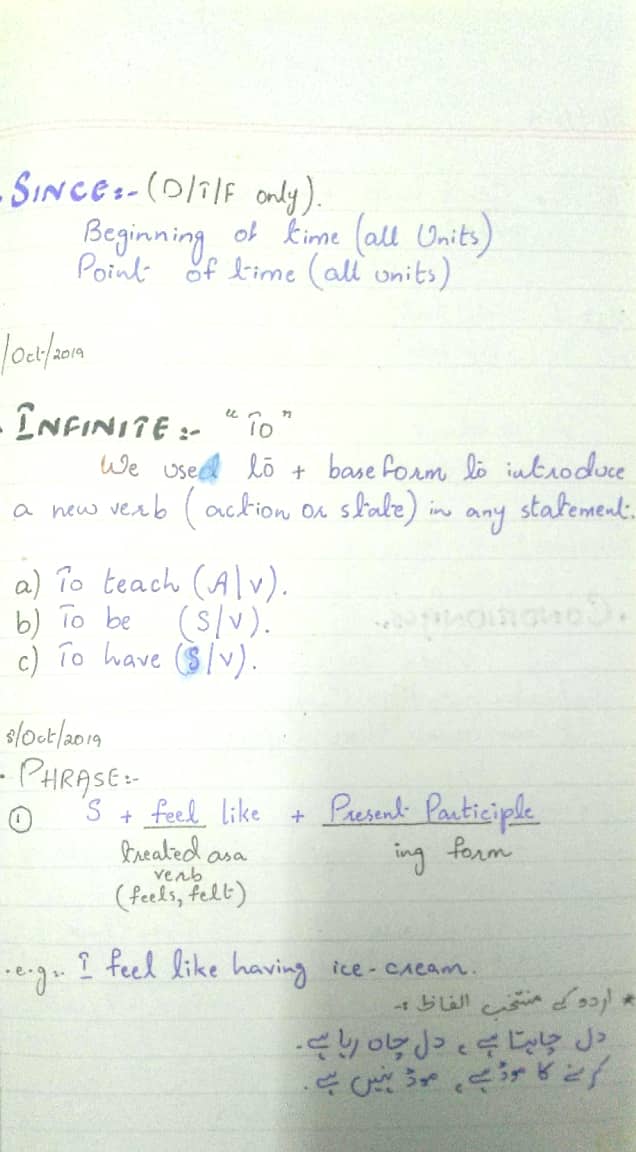 . SINCE:- (D/T/F only).
Beginning of time (all Units)
Point of time (all units)
/Oct/2019
. INFINITE :- "To"
We used to + base form to introduce
a new verb (action or state) in any statement.
a) To teach (A/v).
b) To be (S/v).
c) To have (S/v).
8/Oct/2019
. PHRASE:-
① S + feel like + Present Participle
treated as a ing form
verb
(feels, felt)
.e.g:. I feel like having ice-cream.
* اردو کے منتخب الفاظ :-
دل چاہتا ہے ، دل چاہ رہا ہے۔
کرنے کا موڈ ہے، موڈ نہیں ہے۔